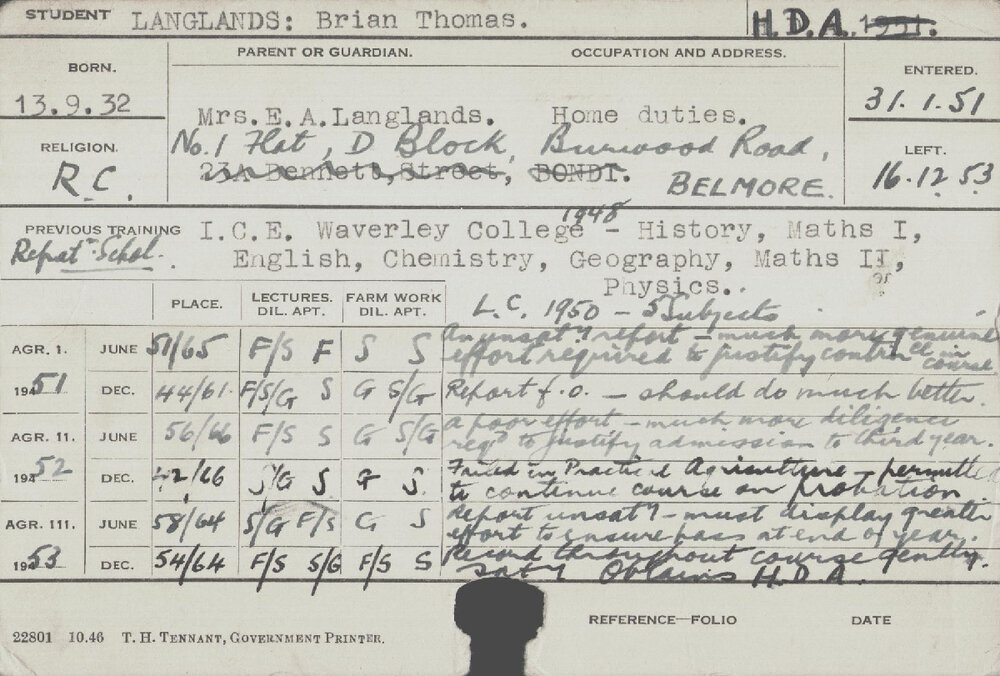 STUDENT LANGLANDS: Brian Thomas. H.D.A. 1951.
PARENT OR GUARDIAN. OCCUPATION AND ADDRESS.
BORN. ENTERED.
13.9.32 31.1.51
Mrs. E. A. Langlands. Home duties.
RELIGION. No.1 Flat, D Block, Burwood Road, LEFT.
R C. 23A Bennett, Street, BONDI. BELMORE. 16.12 53
1948
PREVIOUS TRAINING I.C.E. Waverley College - History, Maths I,
Repat Schol. English, Chemistry, Geography, Maths II,
Physics.
PLACE. LECTURES. FARM WORK L.C. 1950 - 5 Subjects
DIL. APT. DIL. APT.
AGR. 1. JUNE 51/65 F/S F S S An unsaty report - much more genuine
effort required to justify contnce in course
1951 DEC. 44/61 F/S/G S G S/G Report f.o. - should do much better.
AGR. 11. JUNE 56/66 F/S S G S/G A poor effort - much more diligence
reqd to justify admission to third year.
1952 DEC. 42/66 S/G S G S. Failed in Practical Agriculture - permitted
to continue course on probation.
AGR. 111. JUNE 58/64 S/G F/S G S Report unsaty - must display greater
effort to ensure pass at end of year.
1953 DEC. 54/64 F/S S/G F/S S Record throughout course genlly.
saty Obtains H.D.A.
REFERENCE—FOLIO DATE
22801 10.46 T. H. TENNANT, GOVERNMENT PRINTER.